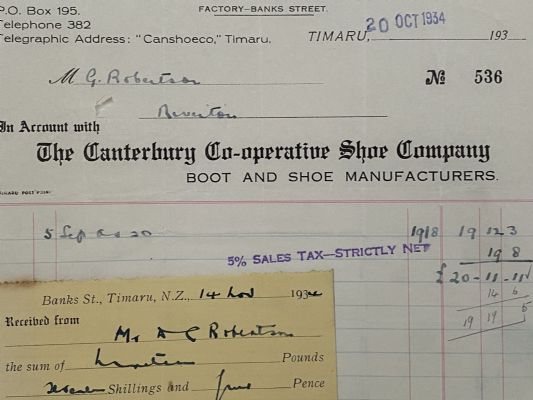 P.O. Box 195.
FACTORY–BANKS STREET.
Telephone 382
Telegraphic Address: "Canshoeco," Timaru.
TIMARU, 20 OCT 1934 193
M G. Robertson
No 536
In Account with
The Canterbury Co-operative Shoe Company
BOOT AND SHOE MANUFACTURERS.
TIMARU POST PRINT
5 Sep 1918 19 12 3
5% SALES TAX—STRICTLY NET 19 8
£ 20 - 11 - 11
14 6
19 19 5
Banks St., Timaru, N.Z., 14 Nov 193
Received from
Mr Robertson
the sum of Nineteen Pounds
Shillings and five Pence